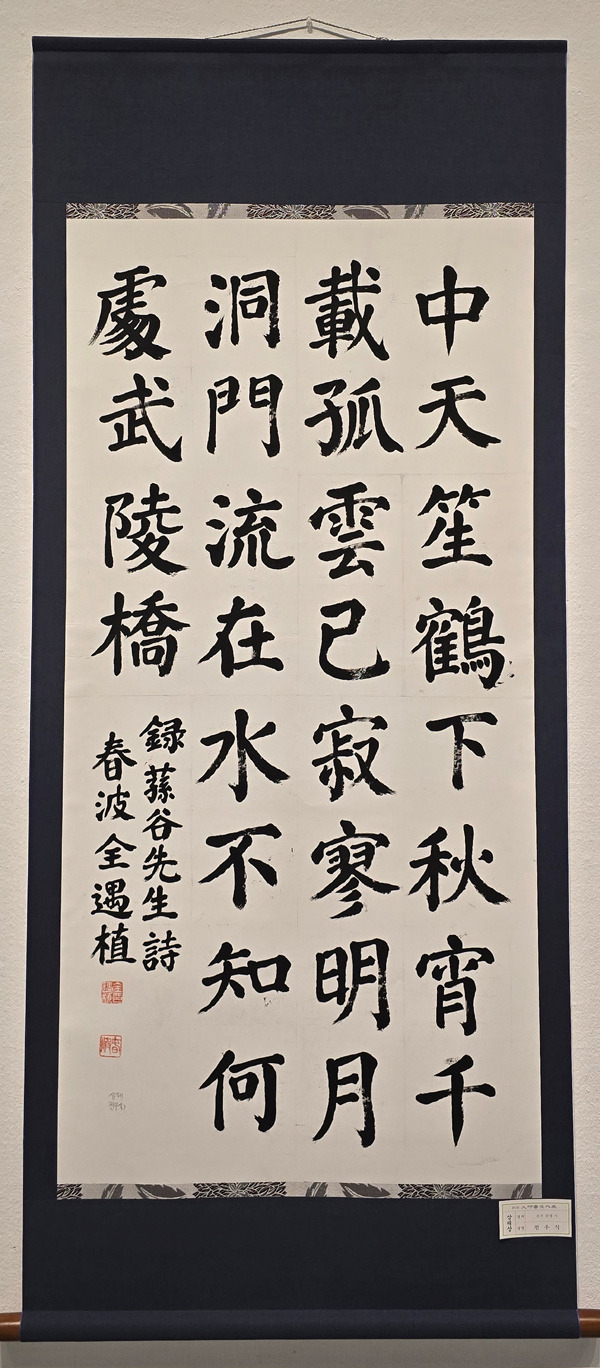 中天笙鶴下秋宵千
載孤雲已寂寥明月
洞門流在水不知何
處武陵橋
録蓀谷先生詩
春波全遇植